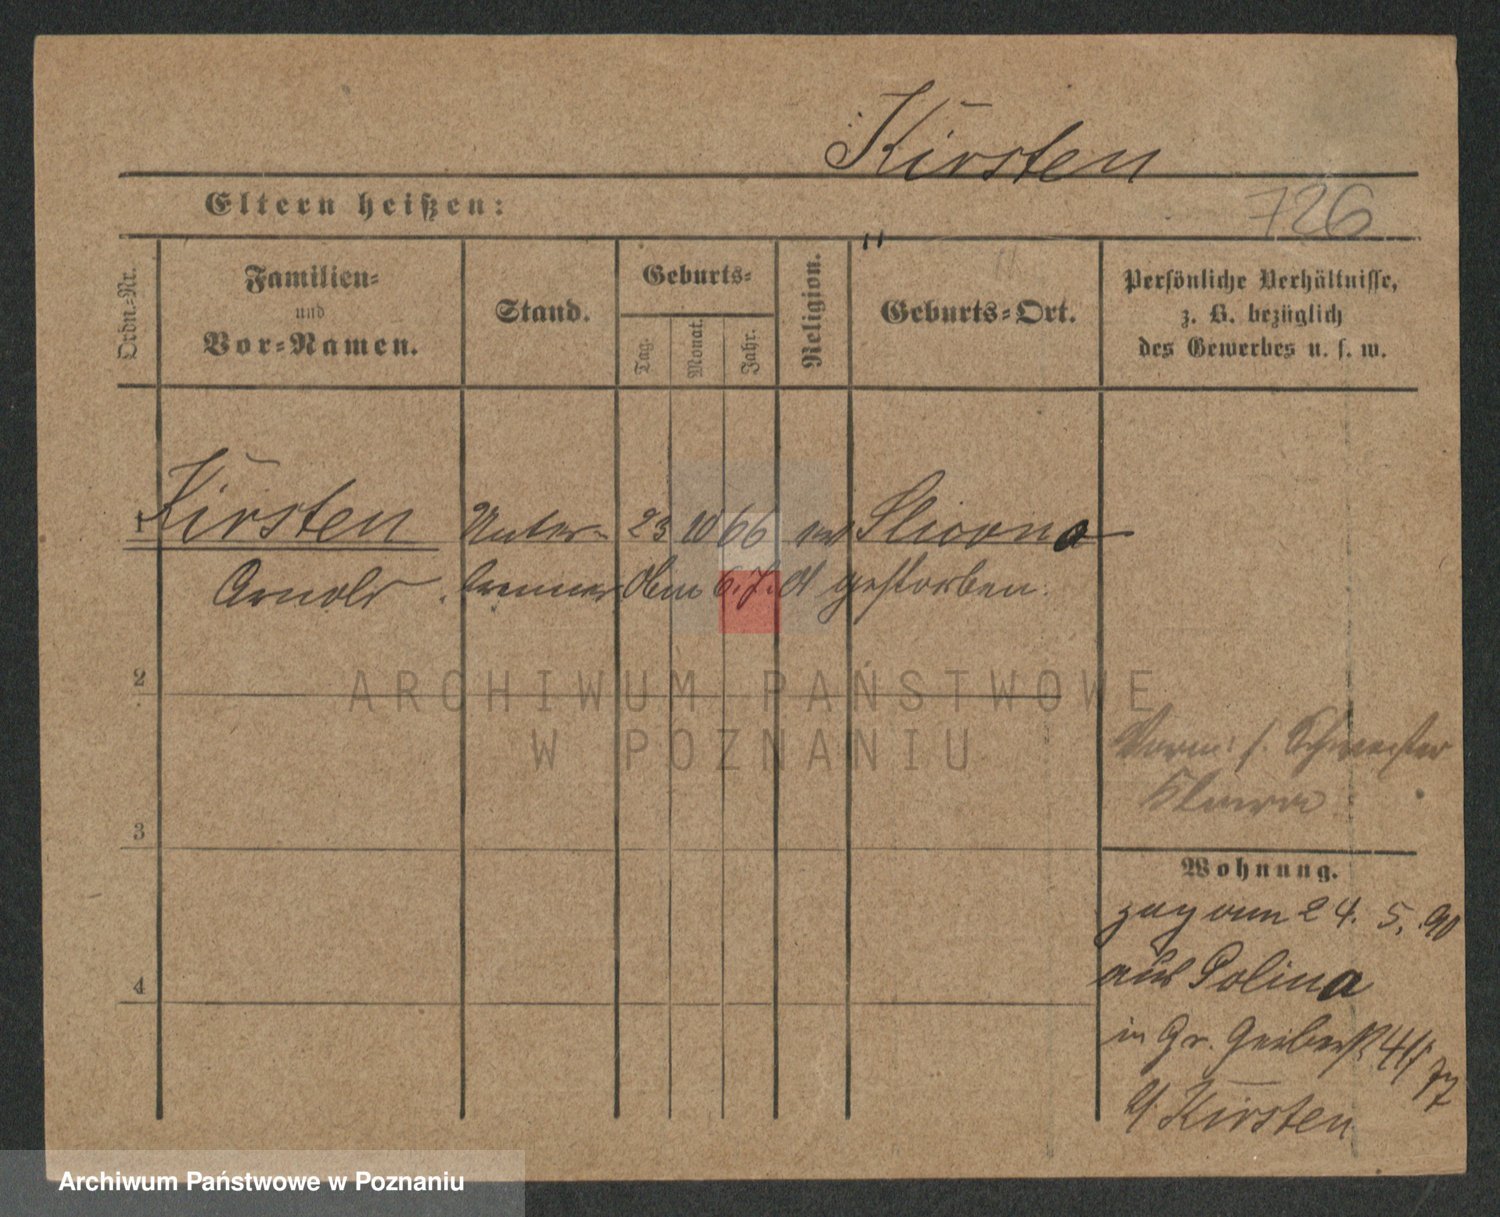 Kirsten
Eltern heißen:
726
"
Ordn.-Nr.
Familien-
und
Vor-Namen.
Stand.
Geburts-
Tag.
Monat.
Jahr.
Religion.
Geburts-Ort.
Persönliche Verhältnisse,
z. B. bezüglich
des Gewerbes u. s. w.
1 Kirsten Unter- 23 10 66 ev
Arnold 6.7.01 gestorben.
2
ARCHIWUM PAŃSTWOWE
W POZNANIU
Schwester
3
Wohnung.
zog am 24. 5. 90
aus
4
in Gr. Gerberstr 41
Kirsten
Archiwum Państwowe w Poznaniu